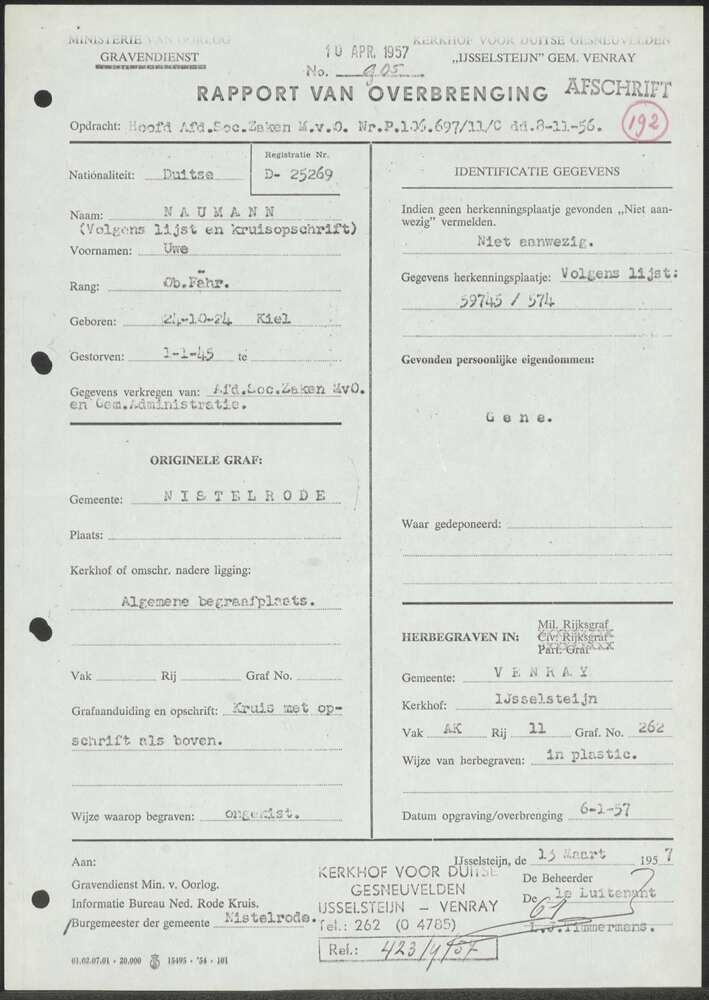 MINISTERIE VAN OORLOG
GRAVENDIENST
10 APR. 1957
No. 905
KERKHOF VOOR DUITSE GESNEUVELDEN
„IJSSELSTEIJN” GEM. VENRAY
RAPPORT VAN OVERBRENGING
AFSCHRIFT
Opdracht: Hoofd Afd.Soc.Zaken M.v.O. Nr.P.106.697/11/C dd.8-11-56.
192
Registratie Nr.
Nationaliteit: Duitse D- 25269
Naam: NAUMANN
(Volgens lijst en kruisopschrift)
Voornamen: Uwe
Rang: Ob.Fähr.
Geboren: 24-10-24 Kiel
Gestorven: 1-1-45 te
Gegevens verkregen van: Afd.Soc.Zaken MvO.
en Gem.Administratie.
ORIGINELE GRAF:
Gemeente: NISTELRODE
Plaats:
Kerkhof of omschr. nadere ligging:
Algemene begraafplaats.
Vak Rij Graf No.
Grafaanduiding en opschrift: Kruis met op-
schrift als boven.
Wijze waarop begraven: ongekist.
IDENTIFICATIE GEGEVENS
Indien geen herkenningsplaatje gevonden „Niet aan-
wezig” vermelden.
Niet aanwezig.
Gegevens herkenningsplaatje: Volgens lijst:
59745 / 574
Gevonden persoonlijke eigendommen:
Gene.
Waar gedeponeerd:
HERBEGRAVEN IN:
Mil. Rijksgraf
Civ. Rijksgraf
Part. Graf
Gemeente: VENRAY
Kerkhof: IJsselsteijn
Vak AK Rij 11 Graf. No. 262
Wijze van herbegraven: in plastic.
Datum opgraving/overbrenging 6-1-57
Aan:
Gravendienst Min. v. Oorlog.
Informatie Bureau Ned. Rode Kruis.
Burgemeester der gemeente Nistelrode.
01.02.07.01 - 20.000 15495 - '54 - 101
KERKHOF VOOR DUITSE
GESNEUVELDEN
IJSSELSTEIJN – VENRAY
Tel.: 262 (0 4785)
Ref.: 423/y/57
IJsselsteijn, de 13 Maart 1957
De Beheerder
De 1e Luitenant
L.J.Timmermans.